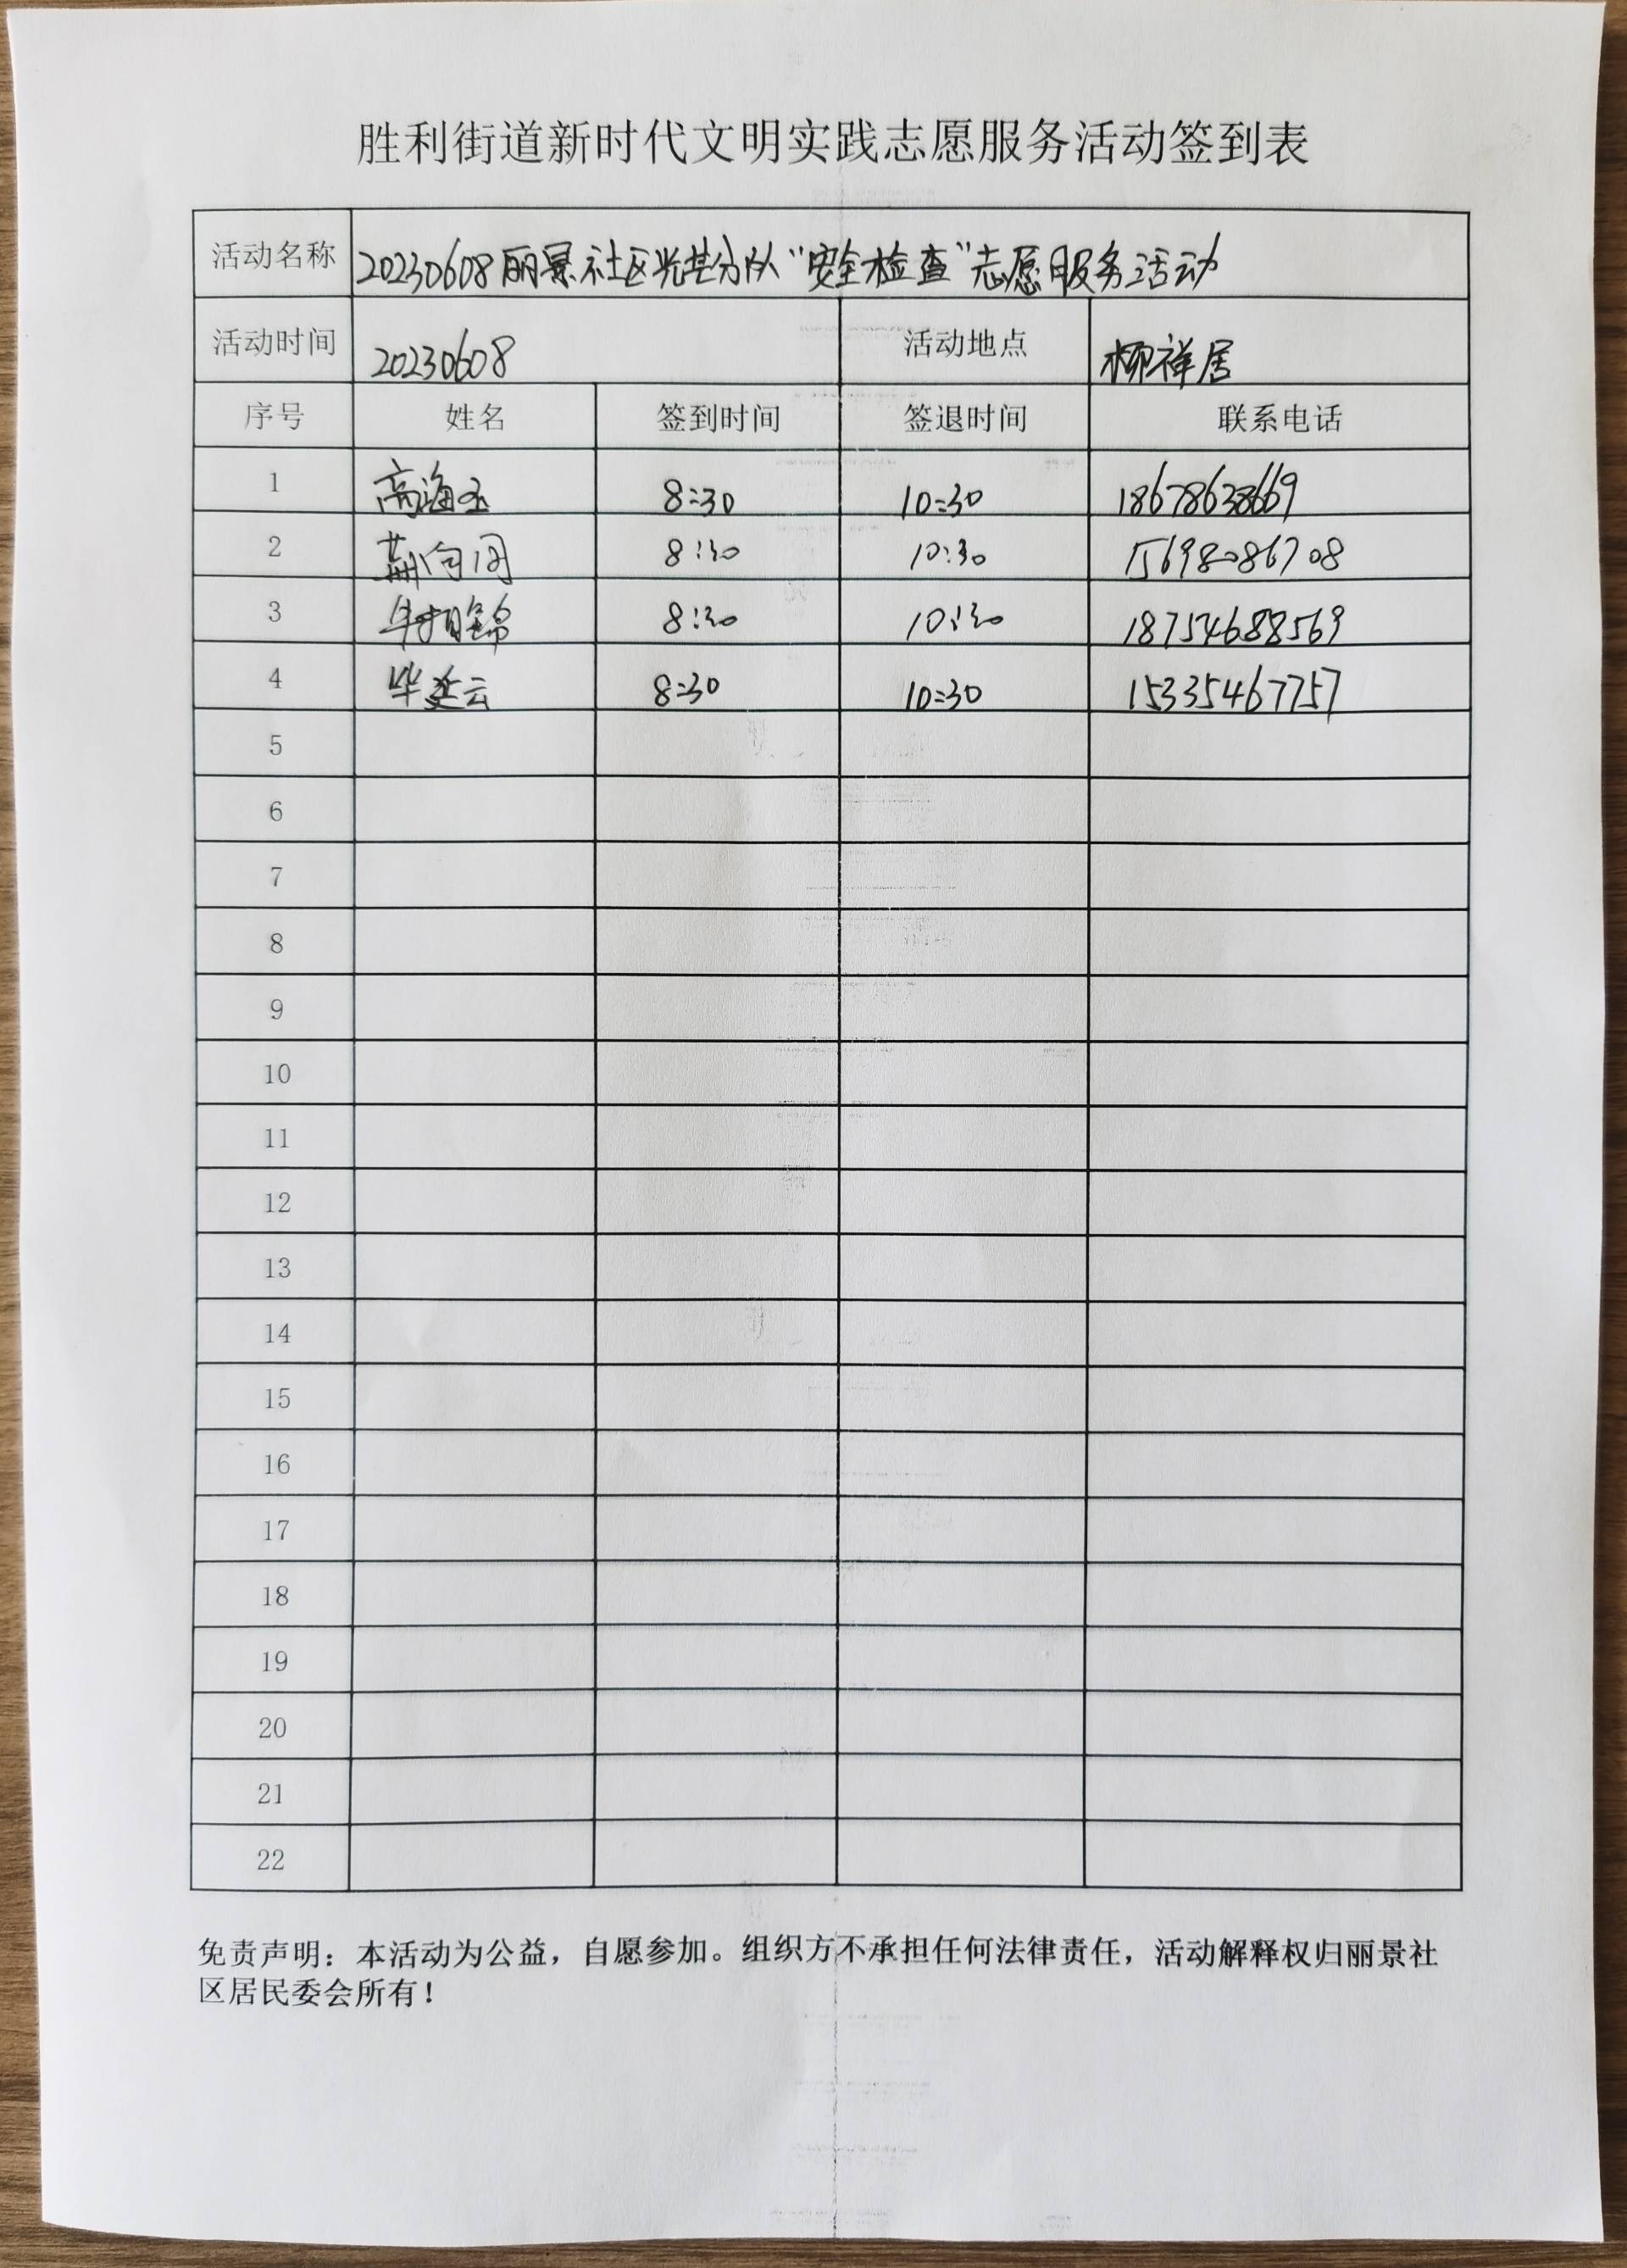 胜利街道新时代文明实践志愿服务活动签到表
活动名称 20230608丽景社区光芒分队“安全检查”志愿服务活动
活动时间 20230608 活动地点 柳祥居
序号 姓名 签到时间 签退时间 联系电话
1 高海玉 8:30 10:30 18678638669
2 8:30 10:30 15698086708
3 8:30 10:30 18754688569
4 毕延云 8:30 10:30 15335467757
5
6
7
8
9
10
11
12
13
14
15
16
17
18
19
20
21
22
免责声明：本活动为公益，自愿参加。组织方不承担任何法律责任，活动解释权归丽景社
区居民委会所有！